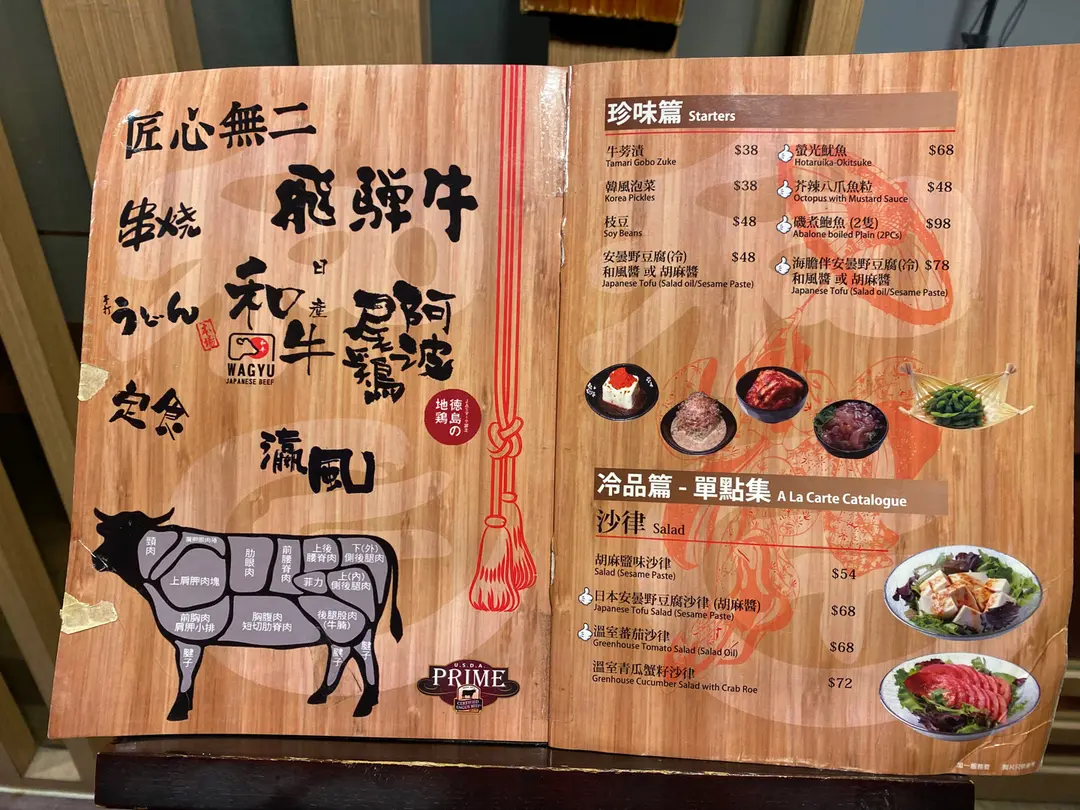 匠心無二
飛騨牛
串焼
手打
うどん
本場
日産
和牛
WAGYU
JAPANESE BEEF
阿波
尾鶏
徳島の
地鶏
定食
瀛風
頸肉
上肩胛肉塊
肋眼肉
前腰脊肉
上後
腰脊肉
下(外)
側後腿肉
菲力
上(內)
側後腿肉
前胸肉
肩胛小排
胸腹肉
短切肋脊肉
後腿股肉
(牛腩)
腱子
腱子
腱子
U.S.D.A.
PRIME
CERTIFIED
ANGUS BEEF
珍味篇 Starters
牛蒡漬 $38
Tamari Gobo Zuke
韓風泡菜 $38
Korea Pickles
枝豆 $48
Soy Beans
安曇野豆腐(冷) $48
和風醬 或 胡麻醬
Japanese Tofu (Salad oil/Sesame Paste)
螢光魷魚 $68
Hotaruika-Okitsuke
芥辣八爪魚粒 $48
Octopus with Mustard Sauce
磯煮鮑魚 (2隻) $98
Abalone boiled Plain (2PCs)
海膽伴安曇野豆腐(冷) $78
和風醬 或 胡麻醬
Japanese Tofu (Salad oil/Sesame Paste)
冷品篇 - 單點集 A La Carte Catalogue
沙律 Salad
胡麻鹽味沙律 $54
Salad (Sesame Paste)
日本安曇野豆腐沙律 (胡麻醬) $68
Japanese Tofu Salad (Sesame Paste)
溫室蕃茄沙律 $68
Greenhouse Tomato Salad (Salad Oil)
溫室青瓜蟹籽沙律 $72
Grenhouse Cucumber Salad with Crab Roe